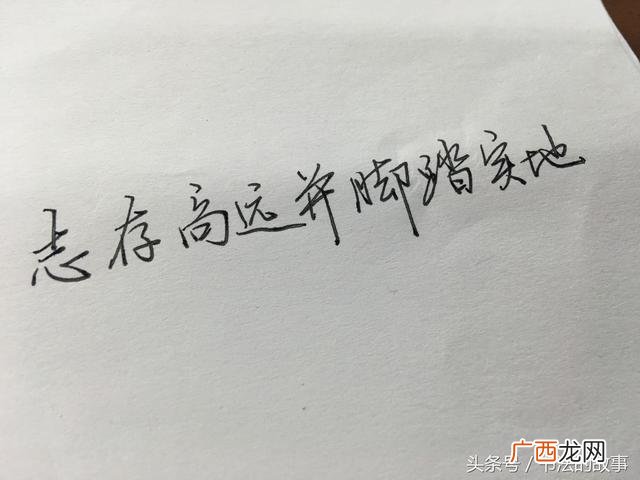 志存高远并脚踏实地
广西龙网
头条号／书法的故事